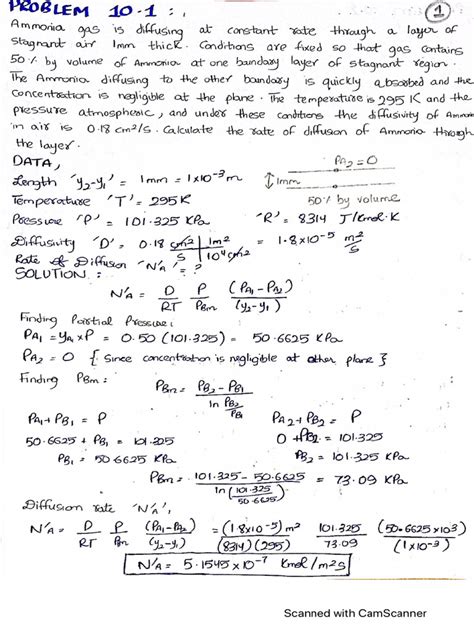 PROBLEM 10.1 :,
①
Ammonia gas is diffusing at constant rate through a layer of
stagnant air 1mm thick. Conditions are fixed so that gas contains
50% by volume of Ammonia at one boundary layer of stagnant region.
The Ammonia diffusing to the other boundary is quickly absorbed and the
concentration is negligible at the plane. The temperature is 295 K and the
pressure atmospheric, and under these conditions the diffusivity of Ammonia
in air is 0.18 cm²/s. Calculate the rate of diffusion of Ammonia through
the layer.
DATA,
PA₂ = 0
Length 'y₂-y₁' = 1mm = 1×10⁻³m
1mm
Temperature 'T' = 295K
50% by volume
Pressure 'P' = 101.325 KPa
'R' = 8314 J/Kmol·K
Diffusivity 'D' = 0.18 cm²/s | 1m²/10⁴cm² = 1.8×10⁻⁵ m²/s
Rate of Diffusion 'N'A' = ?
SOLUTION :
N'A = D/RT P/PBm (PA₁-PA₂)/(y₂-y₁)
Finding Partial Pressure:
PA₁ = yA₁×P = 0.50 (101.325) = 50.6625 KPa
PA₂ = 0 { Since concentration is negligible at other plane }
Finding PBm :
PBm = PB₂ - PB₁ / ln PB₂/PB₁
PA₁ + PB₁ = P
PA₂ + PB₂ = P
50.6625 + PB₁ = 101.325
0 + PB₂ = 101.325
PB₁ = 50.6625 KPa
PB₂ = 101.325 KPa
PBm = 101.325 - 50.6625 / ln(101.325/50.6625) = 73.09 KPa
Diffusion rate 'N'A',
N'A = D/RT P/Bm (PA₁-PA₂)/(y₂-y₁) = (1.8×10⁻⁵)m²/(8314)(295) 101.325/73.09 (50.6625×10³)/(1×10⁻³)
N'A = 5.1545×10⁻⁷ Kmol/m²s
Scanned with CamScanner